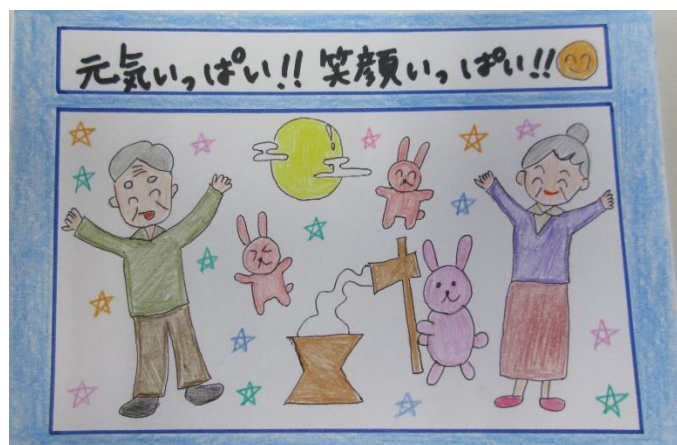 元気いっぱい!! 笑顔いっぱい!!